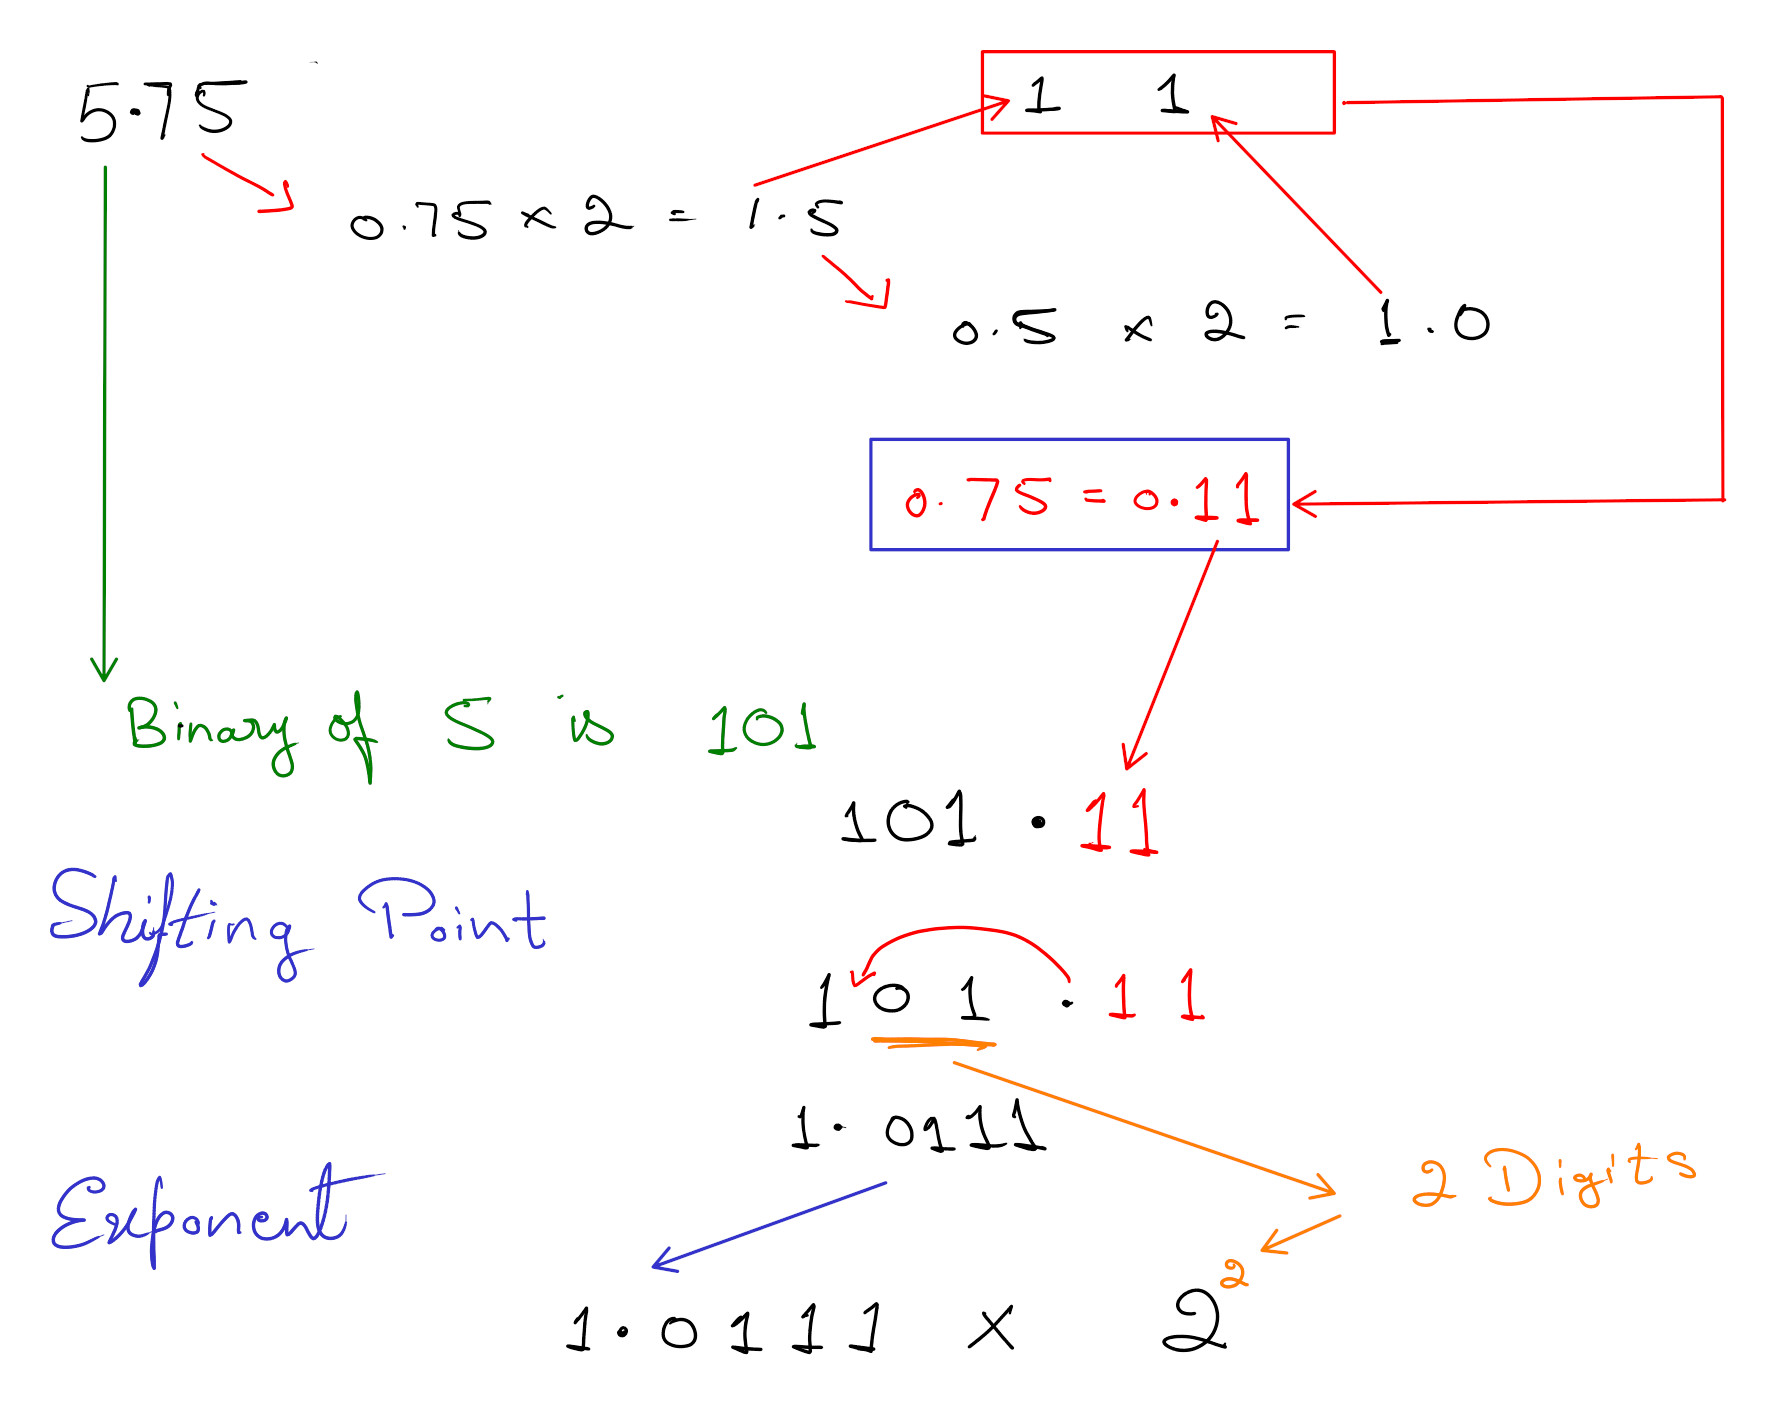 5.75
1 1
0.75 × 2 = 1.5
0.5 × 2 = 1.0
0.75 = 0.11
Binary of 5 is 101
101 . 11
Shifting Point
1 0 1 . 1 1
1. 0111
2 Digits
Exponent
1.0111 × 2²